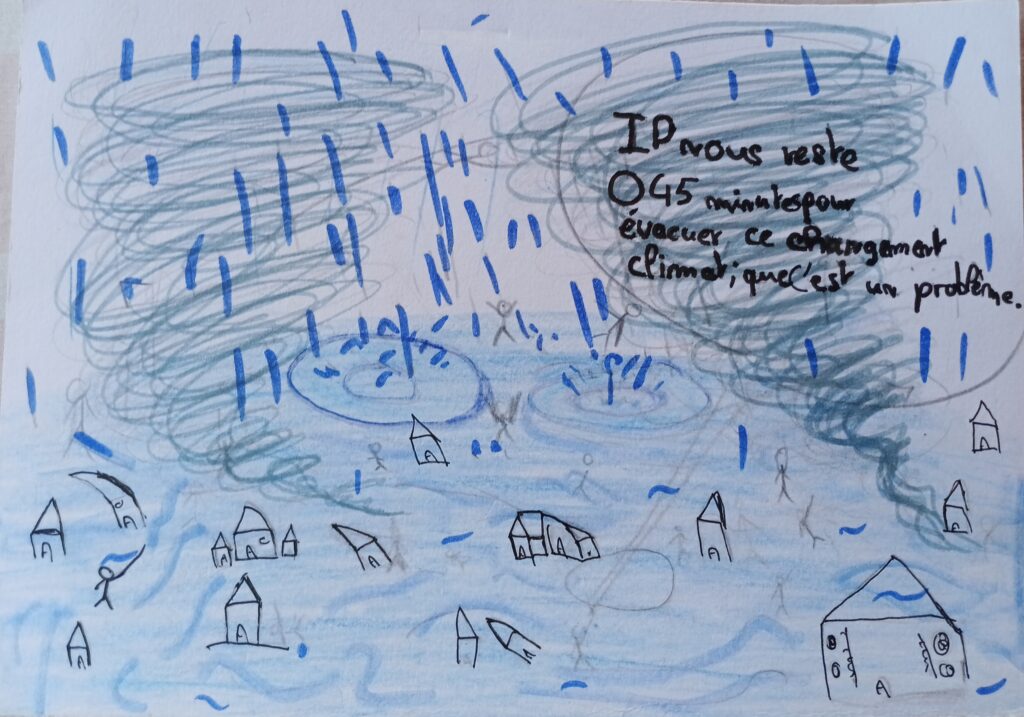 IP nous reste
045 minutes pour
évacuer, ce changement
climatique c'est un problême.